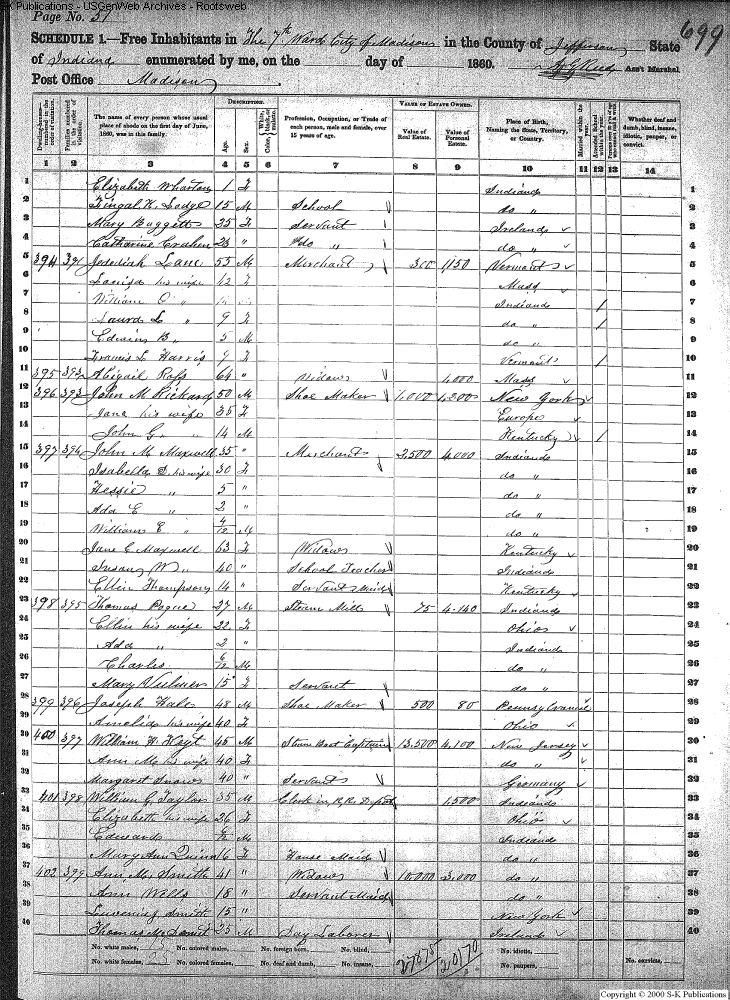 S-K Publications - USGenWeb Archives - Rootsweb
Page No. 51
699
SCHEDULE 1.—Free Inhabitants in The 7th Ward City of Madison in the County of Jefferson State
of Indiana enumerated by me, on the day of 1860. Ass't Marshal
Post Office Madison
DESCRIPTION. VALUE OF ESTATE OWNED.
The name of every person whose usual place of abode on the first day of June, 1860, was in this family.
Age. Sex. Color
Profession, Occupation, or Trade of each person, male and female, over 15 years of age.
Value of Real Estate. Value of Personal Estate.
Place of Birth, Naming the State, Territory, or Country.
Whether deaf and dumb, blind, insane, idiotic, pauper, or convict.
1 2 3 4 5 6 7 8 9 10 11 12 13 14
1 Elizabeth Wharton 1 F Indiana 1
2 Fingal K. Lodge 15 M School do " 2
3 Mary Baggett 35 F Servant Ireland 3
4 Catharine 23 " do " do " 4
5 394 391 Jedediah Lane 55 M Merchant 300 1150 Vermont 5
6 Louisa his wife 42 F Mass 6
7 William C " Indiana / 7
8 Laura L " 9 F do " / 8
9 Edwin B " 5 M do " 9
10 Francis L Harris 9 F Vermont / 10
11 395 392 Abigail 64 " Widow 4,000 Mass 11
12 396 393 John M Rickard 50 M Shoe Maker 1,000 1,200 New York 12
13 Jane his wife 35 F Europe 13
14 John G. " 14 M Kentucky / 14
15 397 394 John M Maxwell 35 " Merchant 2,500 4,000 Indiana 15
16 Isabella D. his wife 30 F do " 16
17 Hessie " 5 " do " 17
18 Ada E " 2 " do " 18
19 William E " 4/12 M do " 19
20 Jane E Maxwell 63 F Widow Kentucky 20
21 Susan W " 40 " School Teacher Indiana 21
22 Ellen Thompson 14 " Servant Maid Kentucky 22
23 398 395 Thomas Pogue 27 M Steam Mill 75 4-140 Indiana 23
24 Ellin his wife 22 F Ohio 24
25 Ada " 2 " Indiana 25
26 Charles 6/12 M do " 26
27 Mary Vulmer 15 F Servant do " 27
28 399 396 Joseph Hale 48 M Shoe Maker 500 80 Pennsylvania 28
29 Amelia his wife 40 F Ohio 29
30 400 397 William H. Hoyt 45 M Steam Boat Captain 13,500 4,100 New Jersey 30
31 Ann M his wife 40 F do " 31
32 Margaret Snow 40 " Servant Germany 32
33 401 398 William G Taylor 35 M Clerk in R.R. Depot 1,500 Indiana 33
34 Elizabeth his wife 26 F Ohio 34
35 Edward M Indiana 35
36 Mary Ann Quinn 16 F House Maid do " 36
37 402 399 Ann M. Smith 41 " Widow 10,000 3,000 do " 37
38 Ann Wells 18 " Servant Maid do " 38
39 Smith 15 " New York 39
40 Thomas McDaniel 25 M Day Laborer Ireland 40
No. white males, No. colored males, No. foreign born, No. blind, No. idiotic,
No. white females, No. colored females, No. deaf and dumb, No. insane, No. paupers, No. convicts,
27875 20170
Copyright © 2000 S-K Publications